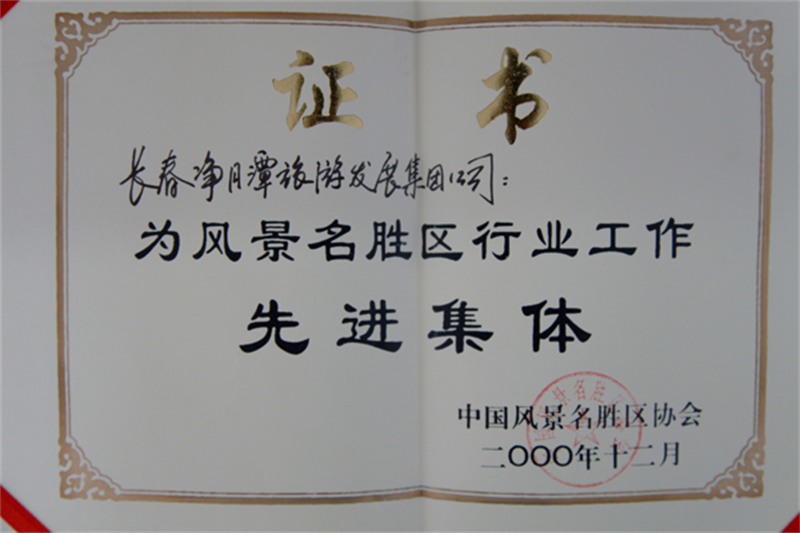 证书
长春净月潭旅游发展集团公司：
为风景名胜区行业工作
先进集体
中国风景名胜区协会
二〇〇〇年十二月